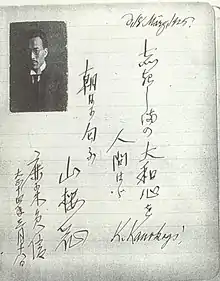 d. 18. März 1925.
志き志まの大和心を
人問はゞ
朝日に匂ふ
山桜花
K. Kanokogi
鹿子木員信
大正十四年三月十八日